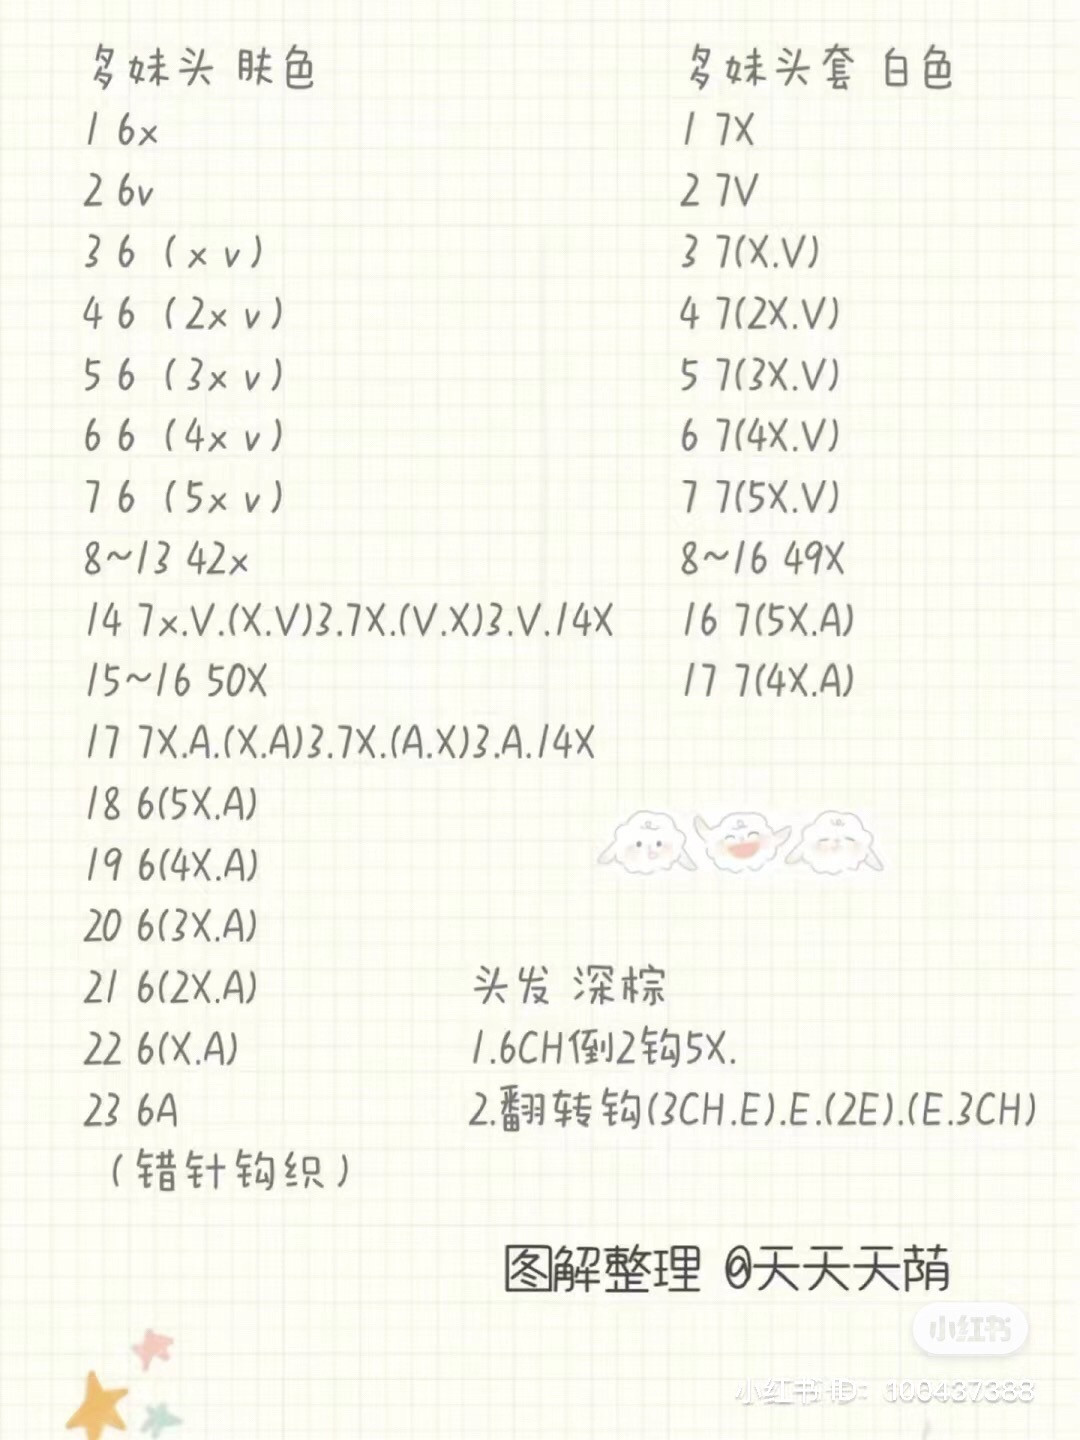 多妹头 肤色
1 6x
2 6v
3 6 (x v)
4 6 (2x v)
5 6 (3x v)
6 6 (4x v)
7 6 (5x v)
8~13 42x
14 7x.V.(X.V)3.7X.(V.X)3.V.14X
15~16 50X
17 7X.A.(X.A)3.7X.(A.X)3.A.14X
18 6(5X.A)
19 6(4X.A)
20 6(3X.A)
21 6(2X.A)
22 6(X.A)
23 6A
(错针钩织)
多妹头套 白色
1 7X
2 7V
3 7(X.V)
4 7(2X.V)
5 7(3X.V)
6 7(4X.V)
7 7(5X.V)
8~16 49X
16 7(5X.A)
17 7(4X.A)
头发 深棕
1.6CH倒2钩5X.
2.翻转钩(3CH.E).E.(2E).(E.3CH)
图解整理 @天天天荫
小红书
小红书ID: 100437388